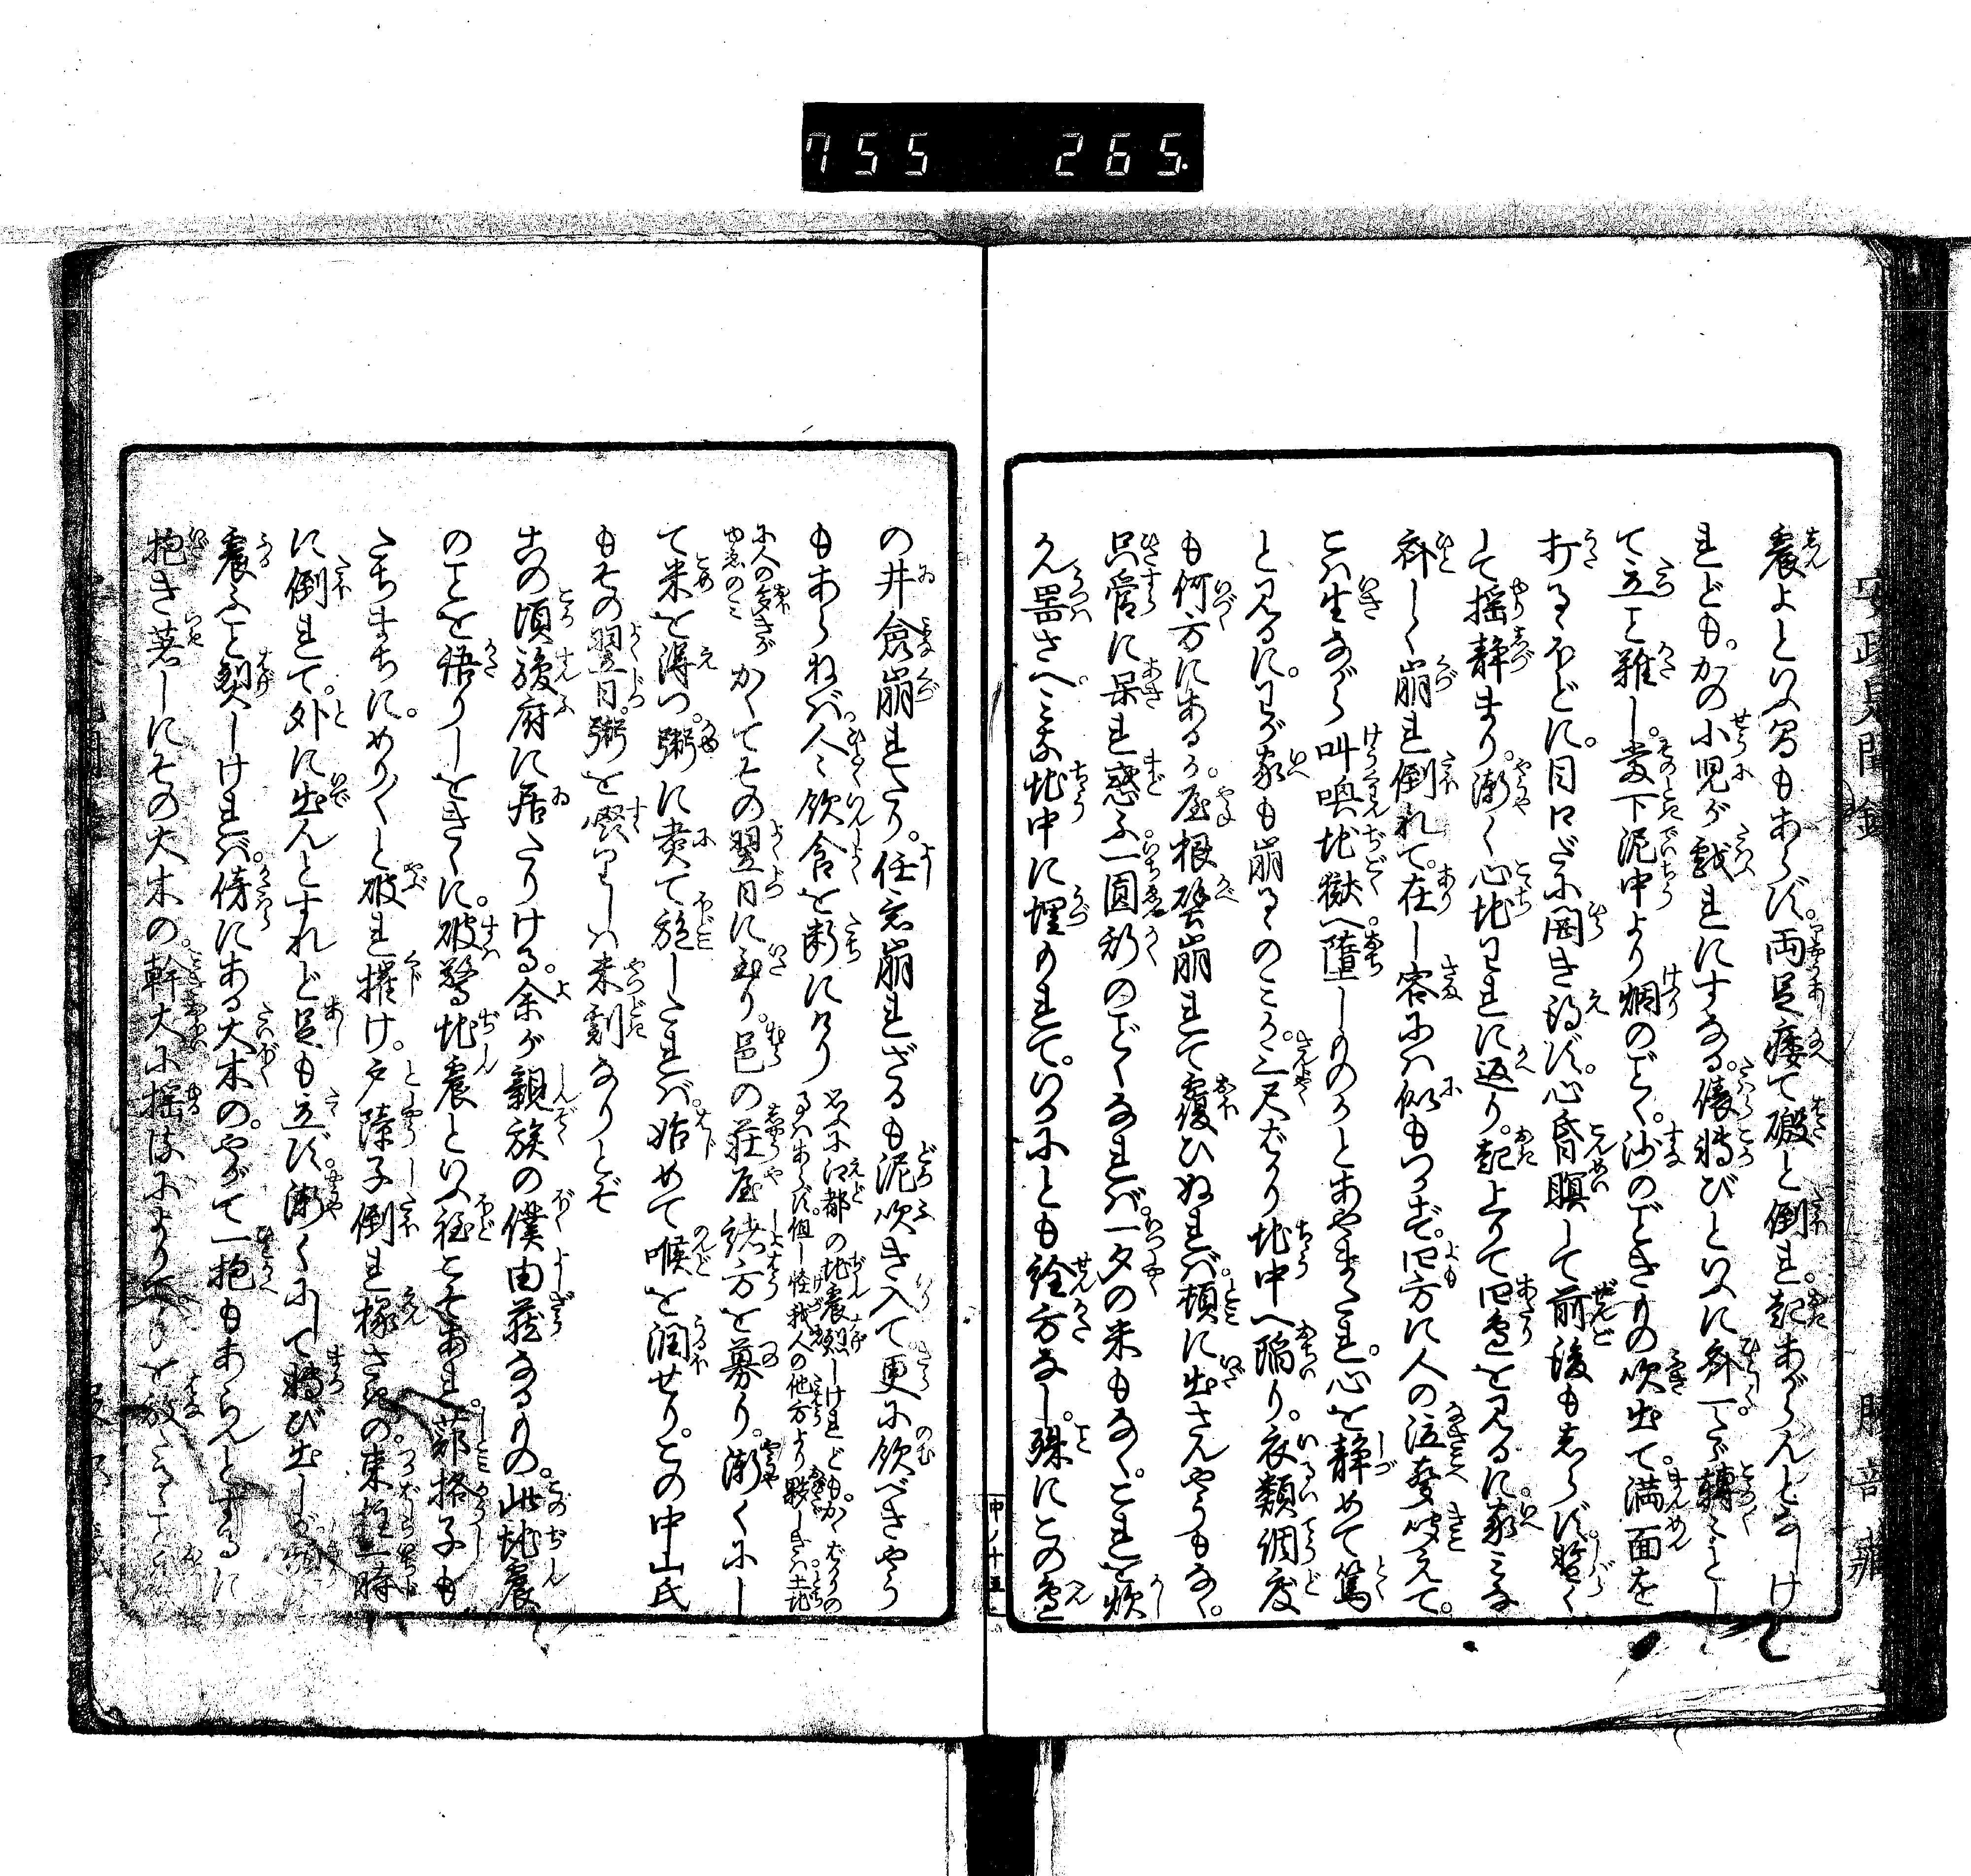 755 265
安政見聞録
服部
震よといふ間もあらず。両足痿て磤と倒れ。起あがらんとなしけ
れども。かの小児が戯れにする。俵転びといふに斉一く。たゞ轉々とし
て立こと難し。当下泥中より烟のごとく。沙のごときもの吹出て。満面を
打るゝほどに。目口さへ開き得ず。心昏瞑して前後もしらず。暫く
して揺静まり。漸く心地われに返り。起上りて四邉を見るに。家みな
斉しく崩れ倒れて。在し容には似もつかず。四方に人の泣聲聞えて。
こは生ながら叫喚地獄へ。堕しものかとあやまたれ。心を静めて篤
と見るに。わが家も崩るゝのみか。三尺ばかり地中へ陥り。衣類調度
も何方にあるか。屋根壁崩れて覆ひぬれば。頓に出さんやうもなく。
只管に呆れ惑ふ。一圓形のごとくなれば。一夕の米もなく。これを炊
ん器さへみな地中に埋められて。いかにとも詮方なし。殊にこの邉
中ノ十五
の井倉崩れたり。任意崩れざるも泥吹き入て更に飲べきやう
もあらねば。人々飲食を断にけり
かくてその翌日に至り。邑の荘屋諸方を募り。漸くにし
て米を得つ。粥に煮て施したれば。始めて喉を潤せり。この中山氏
もその翌日。粥を啜りしは未刻なりとぞ
其の頃駿府に居たりける。余が親族の僕由蔵なるもの。此地震
のことを悟りしをきくに。破驚地震といふ程こそあれ。蔀格子も
たちまちに。めり〳〵と破れ摧け。戸障子倒れ椽さきの。束柱一時
に倒れて。外に出んとすれど足も立ず。漸くにして轉び出しが
震ふこと烈しければ。傍にある大木の。やがて一抱もあらんとするに
抱き著しにその大木の。幹大に揺るによりて。手を放